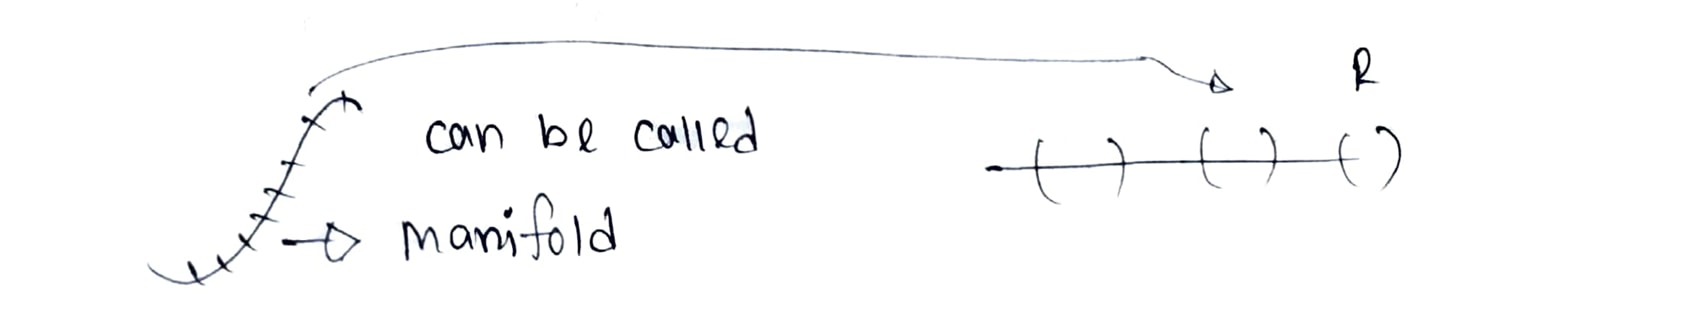 R
can be called
manifold